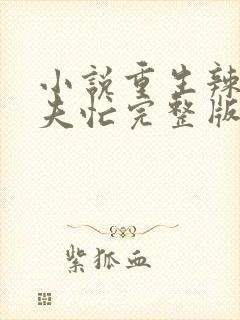 小说重生辣
夫忙完整版
紫狐血